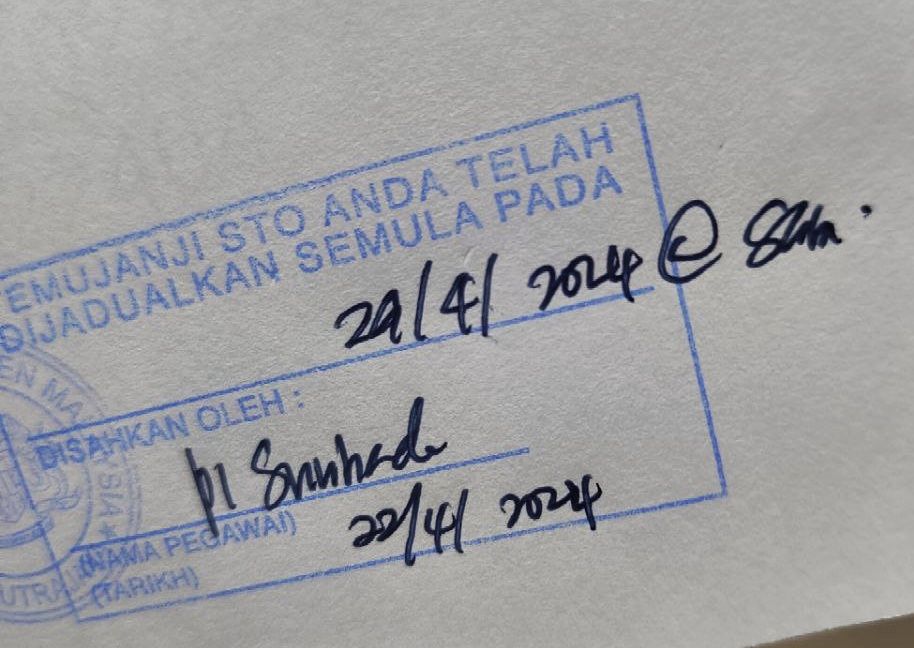 EMUJANJI STO ANDA TELAH
DIJADUALKAN SEMULA PADA
29/4/2024 @ 8am.
DISAHKAN OLEH :
22/4/2024
(NAMA PEGAWAI)
(TARIKH)